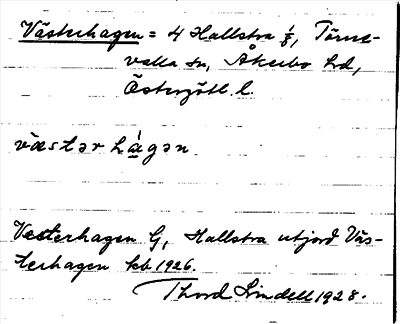 Västerhagen = 4 Hallstra ⅛, Törne-
valla sn, Åkerbo hd,
Östergötl. l.
väs tər hágən
Vesterhagen G, Hallstra utjord Väs-
terhagen kb 1926.
Thord Lindell 1928.